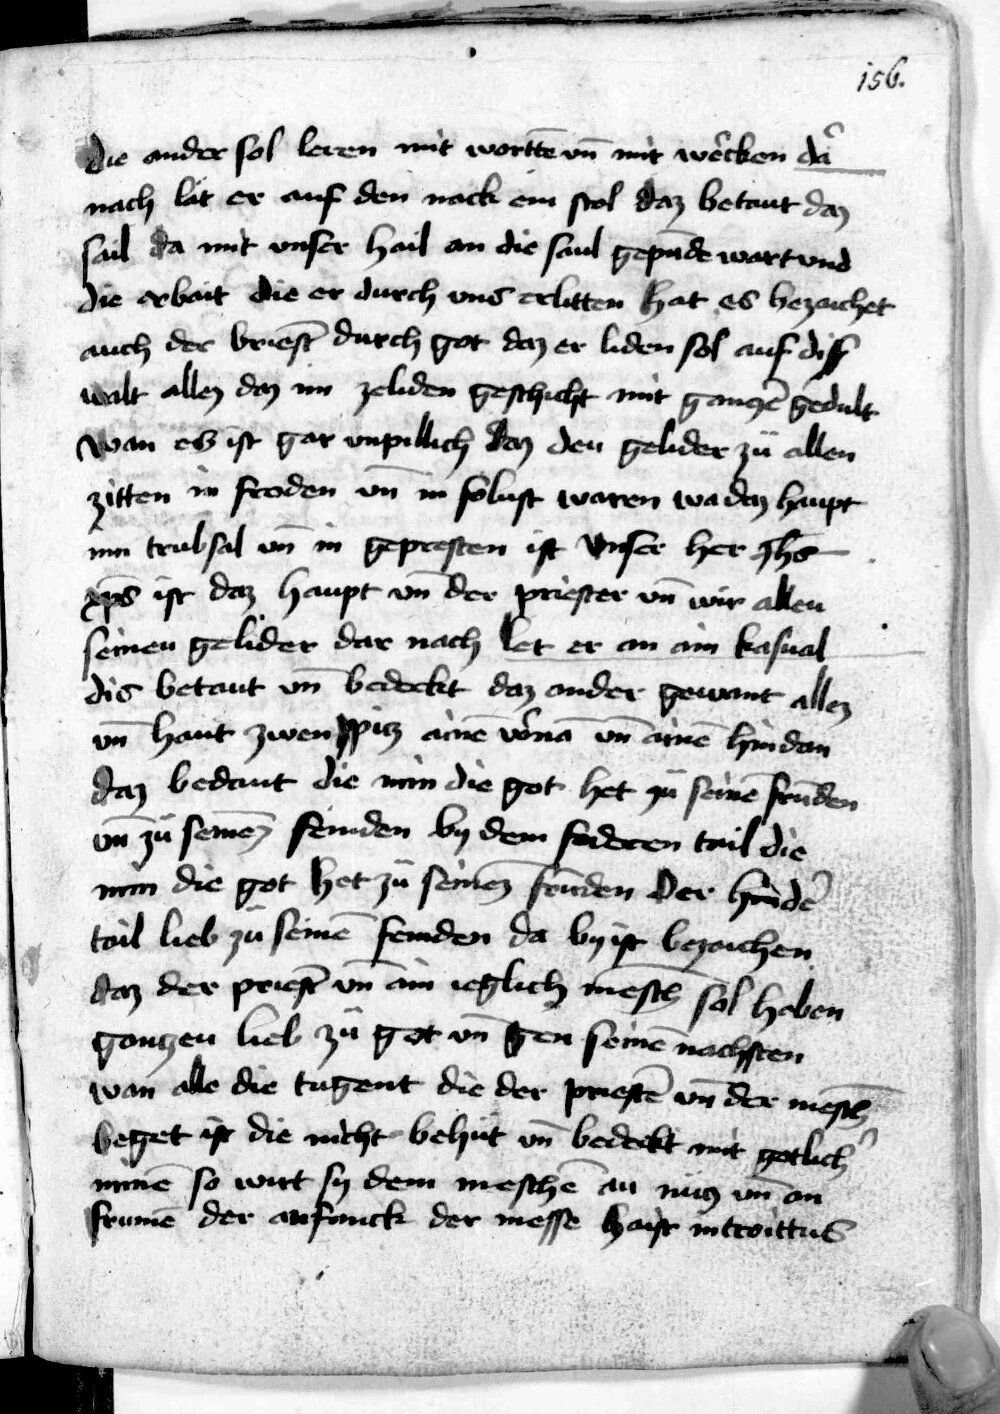 156.
die ander sol leren mit wortē vn̄ mit wêcken dâ
nach lät er auf den nack ein stol daz betäut daz
sail da mit vnser hail an die saul gepūde wart vnd
die arbait die er durch vns erlitten hat es bezaichet
auch der briest̄ durch got daz er liden sol auf diss
walt allez daz im ze liden geschicht mit gantzē gedult
wan es ist gar vnpillich daz deu gelider zü allen
zitten in froden vn̄ in solust waren wa daz haupt
inn trubsal vn̄ in gepresten ist vnser her Jhs̄
xp̄s ist daz haupt vn̄ der priester vn̄ wir alleu
seineu gelider dar nach let er an ain kasual
dis betäut vn̄ bedeckt daz ander gewant allez
vn̄ haut zwen spitz ainē vornā vn̄ ainē hindan
daz bedaut die min die got het zü seinē frūden
vn̄ zü seinez feinden by dem foderen tail die
min die got het zü seinez frūden Der hindē
tail lieb zü seinē feinden da by ist bezaichen
daz der priest̄ vn̄ ain ieglich mesch̄ sol heben
gantzeu lieb zü got vn̄ gen seinē nachsten
wan alle die tugent die der priestē vn̄ der mesch̄
beget ist die nicht behüt vn̄ bedeckt mit gotlich̄
minē so wirt sy dem meschē an nütz vn̄ an
frumē der anfanck der messe haist introittus